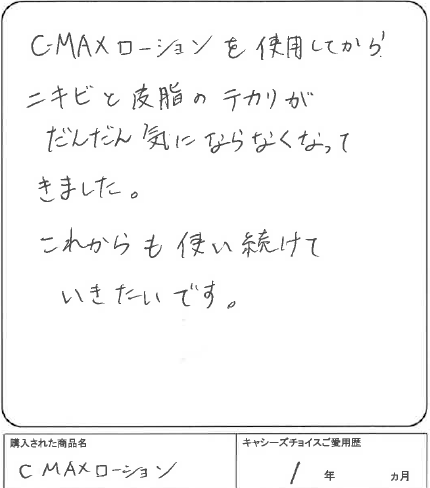 C-MAXローションを使用してから
ニキビと皮脂のテカリが
だんだん気にならなくなって
きました。
これからも使い続けて
いきたいです。
購入された商品名
キャシーズチョイスご愛用歴
C MAXローション
1年 カ月